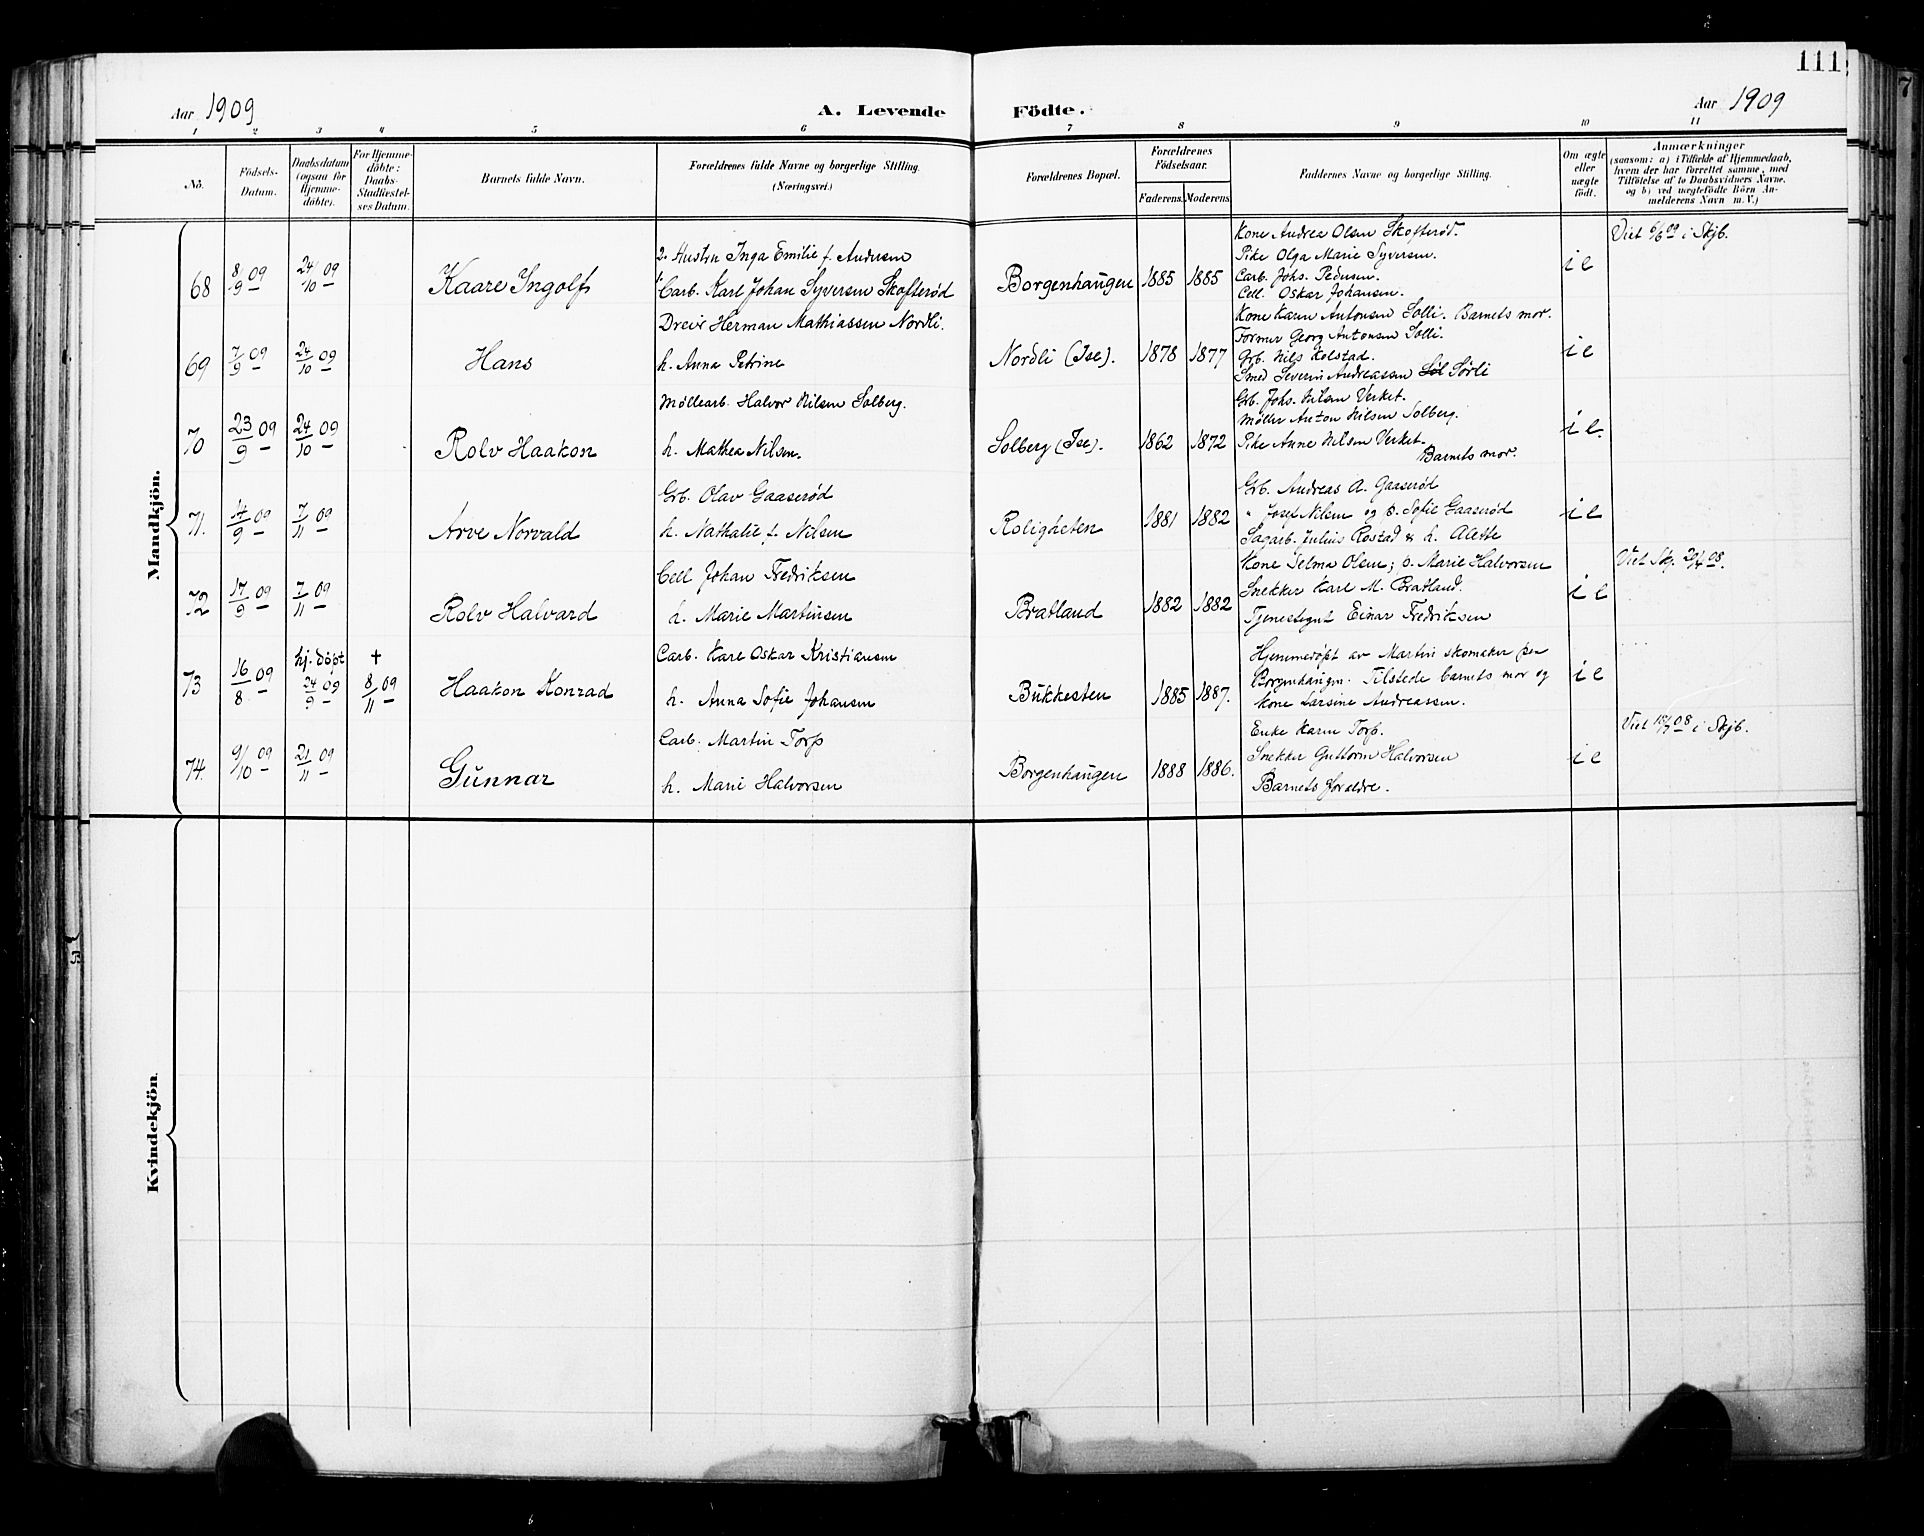 111
Aar 1909
A. Levende Födte.
Aar 1909
1 2 3 4 5 6 7 8 9 10 11
No.
Födsels-
Datum.
Daabsdatum
(ogsaa for
Hjemme-
döbte).
For Hjemme-
döbte:
Daabs-
Stadfæstel-
ses Datum.
Barnets fulde Navn.
Forældrenes fulde Navne og borgerlige Stilling.
(Næringsvei.)
Forældrenes Bopæl.
Forældrenes
Födselsaar.
Faderens. Moderens.
Faddernes Navne og borgerlige Stilling.
Om ægte
eller
uægte
født.
Anmærkninger
(saasom: a) i Tilfælde af Hjemmedaab,
hvem der har forrettet samme, med
Tilföielse af to Daabsvidners Navne,
og b) ved uægtefödte Börn An-
melderens Navn m. V.)
Mandkjön.
68 8/9 09 24/10 09 Kaare Ingolf
2. Hustru Inga Emilie f. Andersen
1. Carb. Karl Johan Syversen Skofterød
Borgenhaugen 1885 1885
Kone Andrea Olsen Skofterød.
Pike Olga Marie Syversen.
Carb. Johs. Pedersen.
Cell. Oskar Johansen.
i e
Viet 6/6 09 i Skjb.
69 7/9 09 24/10 09 Hans
Dreier Herman Mathiassen Nordli.
h. Anna Petrine
Nordli (Ise). 1878 1877
Kone Karen Antonsen Solli. Barnets mor.
Former Georg Antonsen Solli.
Grb. Nils Kolstad.
Smed Severin Andreassen Sørli
i e
70 23/9 09 24/10 09 Rolv Haakon
Møllearb. Halvor Nilsen Solberg.
h. Mathea Nilsen.
Solberg (Ise). 1862 1872
Grb. Johs. Nilsen Verket.
Møller Anton Nilsen Solberg.
Pike Anne Nilsen Verket.
Barnets mor.
i e.
71. 14/9 09 7/11 09 Arve Norvald
Grb. Olav Gaaserød
h. Nathalie f. Nilsen
Roligheten 1881 1882
Grb. Andreas A. Gaaserød
" Josef Nilsen og p. Sofie Gaaserød
Sagarb. Julius Rostad & h. Alette
i e
72 17/9 09 7/11 09 Rolv Halvard
Cell Johan Fredriksen
h. Marie Martinsen
Bratland 1882 1882
Kone Selma Olsen; p. Marie Halvorsen
Snekker Karl M. Bratland.
Tjenestegut Einar Fredriksen
i e
Viet Skj. 20/4 08.
73 16/8 09 hj. døpt 24/9 09 + 8/11 09 Haakon Konrad
Carb. Karl Oskar Kristiansen
h. Anna Sofie Johansen
Bukkesten 1885 1887.
Hjemmedøpt av Martin skomaker paa
Borgenhaugen. Tilstede barnets mor og
Kone Larsine Andreassen.
i e
74. 9/10 09 21/11 09 Gunnar
Carb. Martin Torp
h. Marie Halvorsen
Borgenhaugen 1888 1886.
Enke Karen Torp.
Snekker Guttorm Halvorsen
Barnets forældre.
i e
Viet 08 i Skjb.
Kvindekjön.